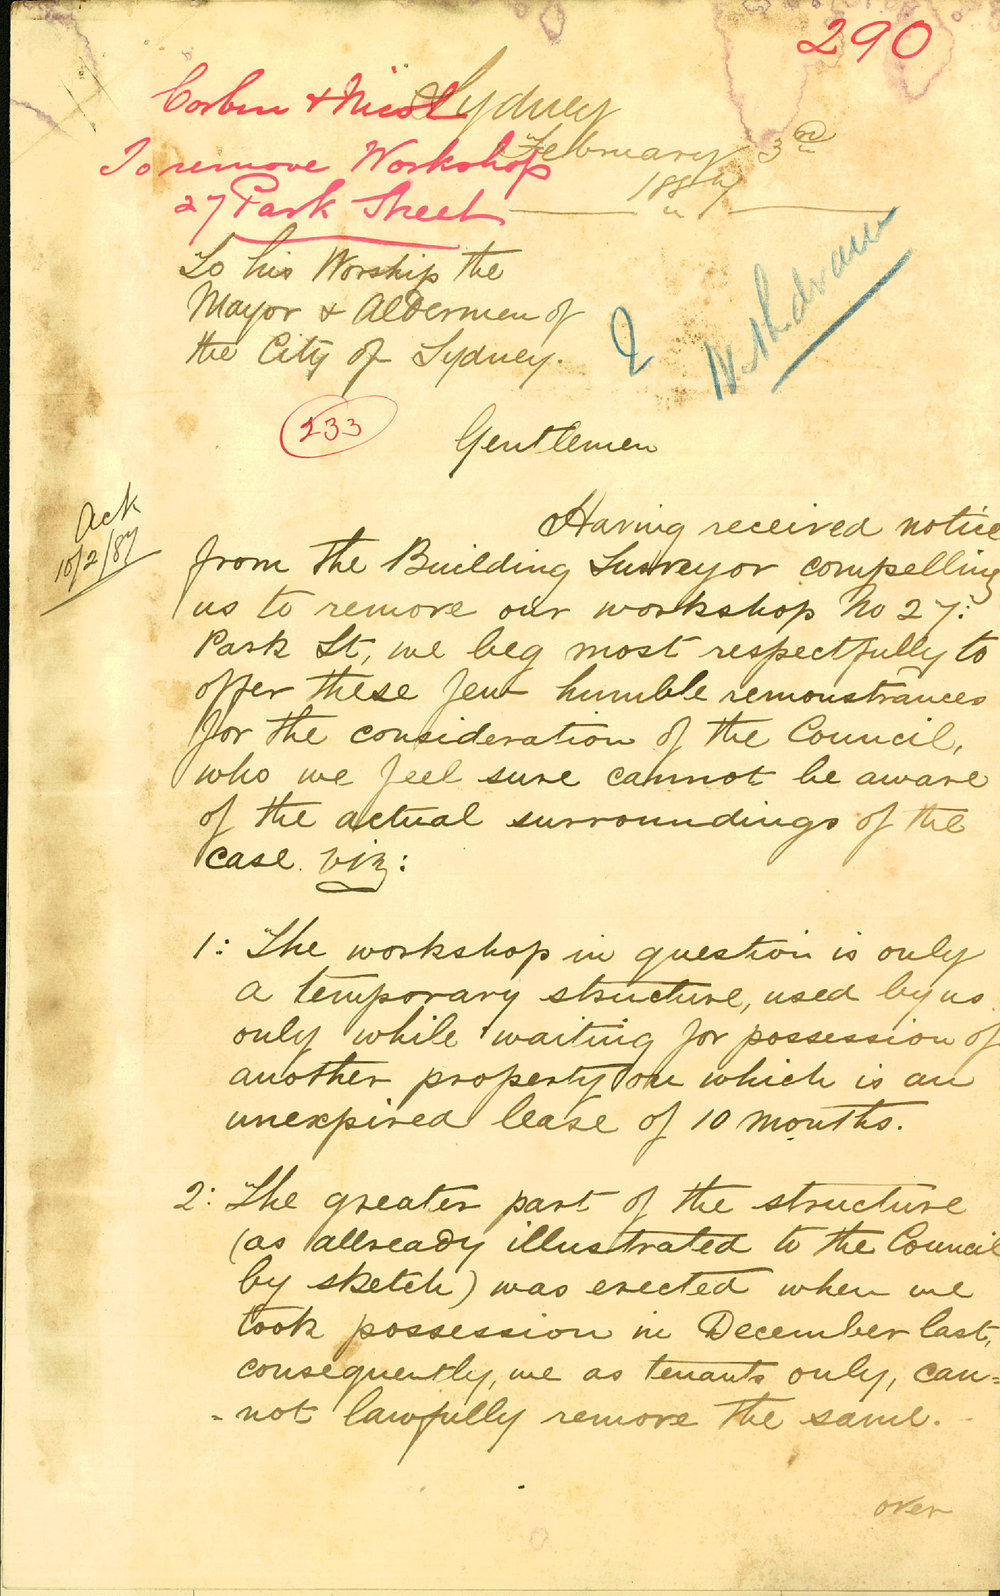 290
Corbin & Nicol
To remove Workshop
27 Park Street
Sydney
February 3rd
1887
To his Worship the
Mayor & Aldermen of
the City of Sydney.
2
233
Gentlemen
Ack
10/2/87
Having received notice
from the Building Surveyor compelling
us to remove our workshop No 27:
Park St, we beg most respectfully to
offer these few humble remonstrances
for the consideration of the Council,
who we feel sure cannot be aware
of the actual surroundings of the
case. viz:
1: The workshop in question is only
a temporary structure, used by us
only while waiting for possession of
another property on which is an
unexpired lease of 10 months.
2: The greater part of the structure
(as allready illustrated to the Council
by sketch) was erected when we
took possession in December last,
consequently, we as tenants only, can=
-not lawfully remove the same.
over